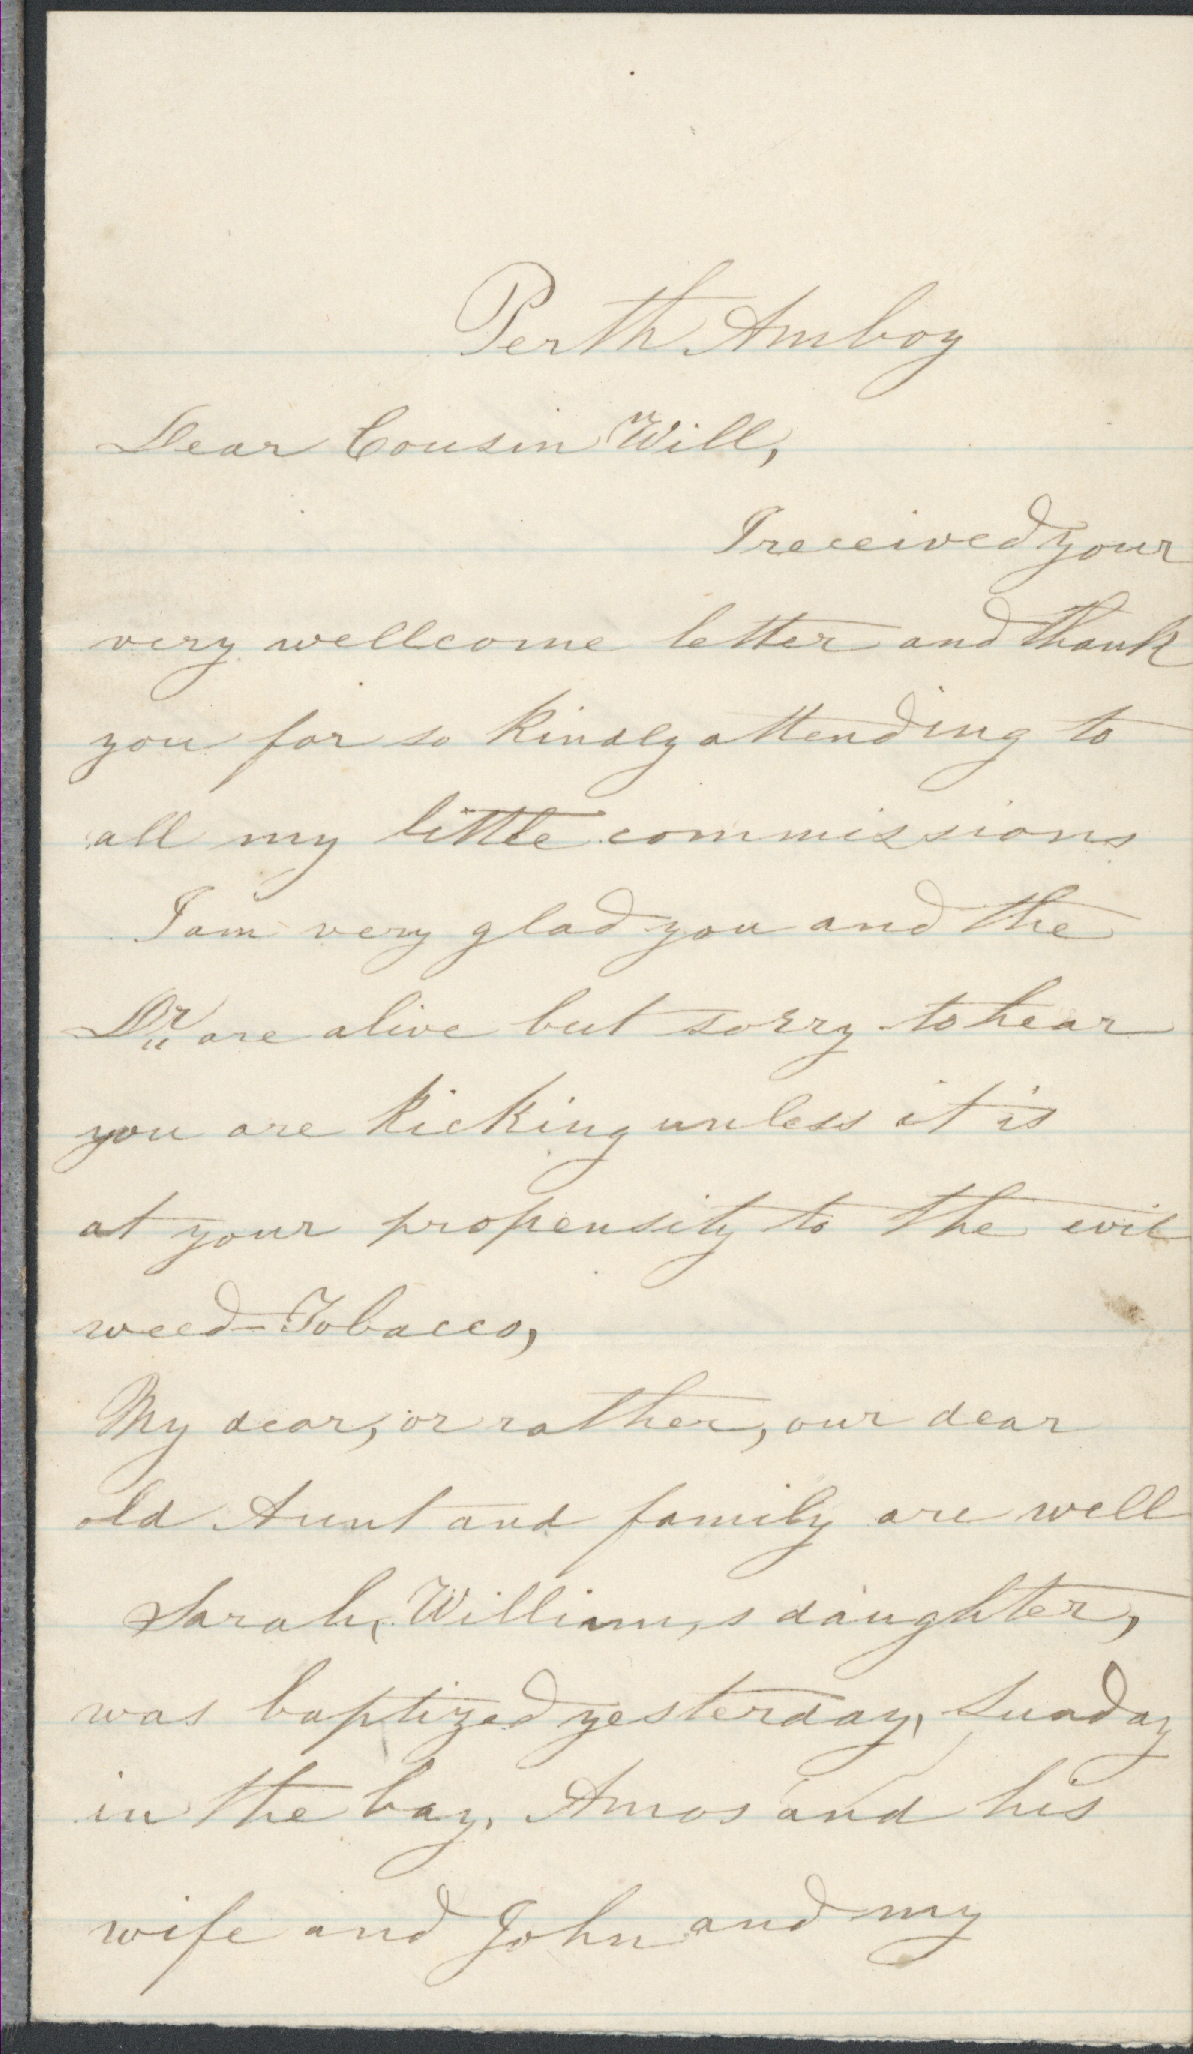 Perth Amboy
Dear Cousin Will,
I received your
very wellcome letter and thank
you for so kindly attending to
all my little commissions
I am very glad you and the
Dr are alive but sorry to hear
you are kicking unless it is
at your propensity to the evil
weed-Tobacco,
My dear, or rather, our dear
old Aunt and family are well
Sarah, William,s daughter,
was baptized yesterday, Sunday
in the bay, Amos and his
wife and John and my